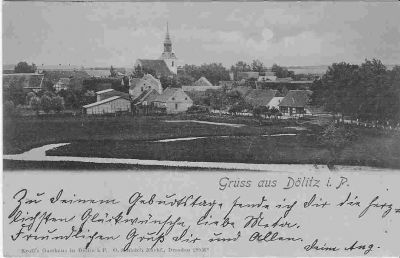 Gruss aus Dölitz i. P.
Zu Deinem Geburtstage sende ich Dir die herz-
lichsten Glückwünsche, liebe Meta,
Freundlichen Gruß Dir und Allen.
Deine Aug.
Krüll's Gasthaus in Dölitz i. P.